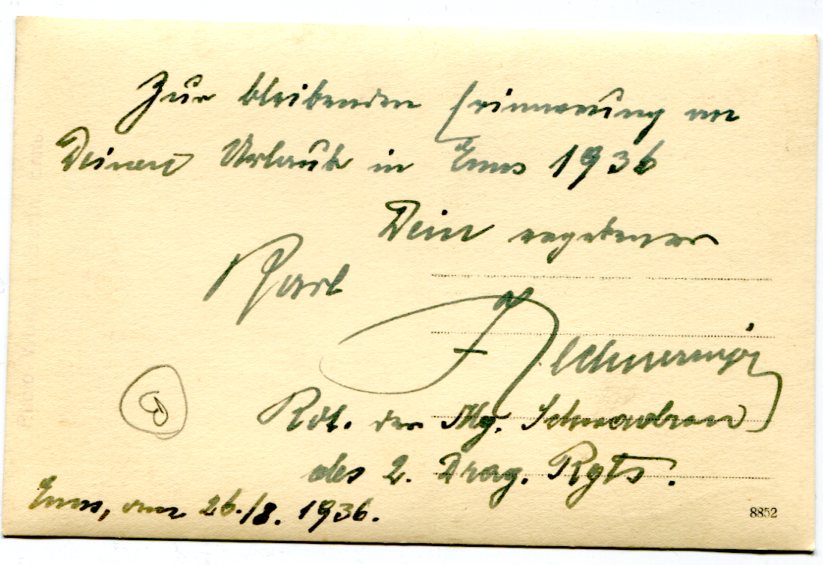 Zur bleibenden Erinnerung an
Deinen Urlaub in Enns 1936
Dein ergebener
Karl
Kdt. der Mg. Schwadron
des 2. Drag. Rgts.
Enns, am 26./8. 1936.
8852